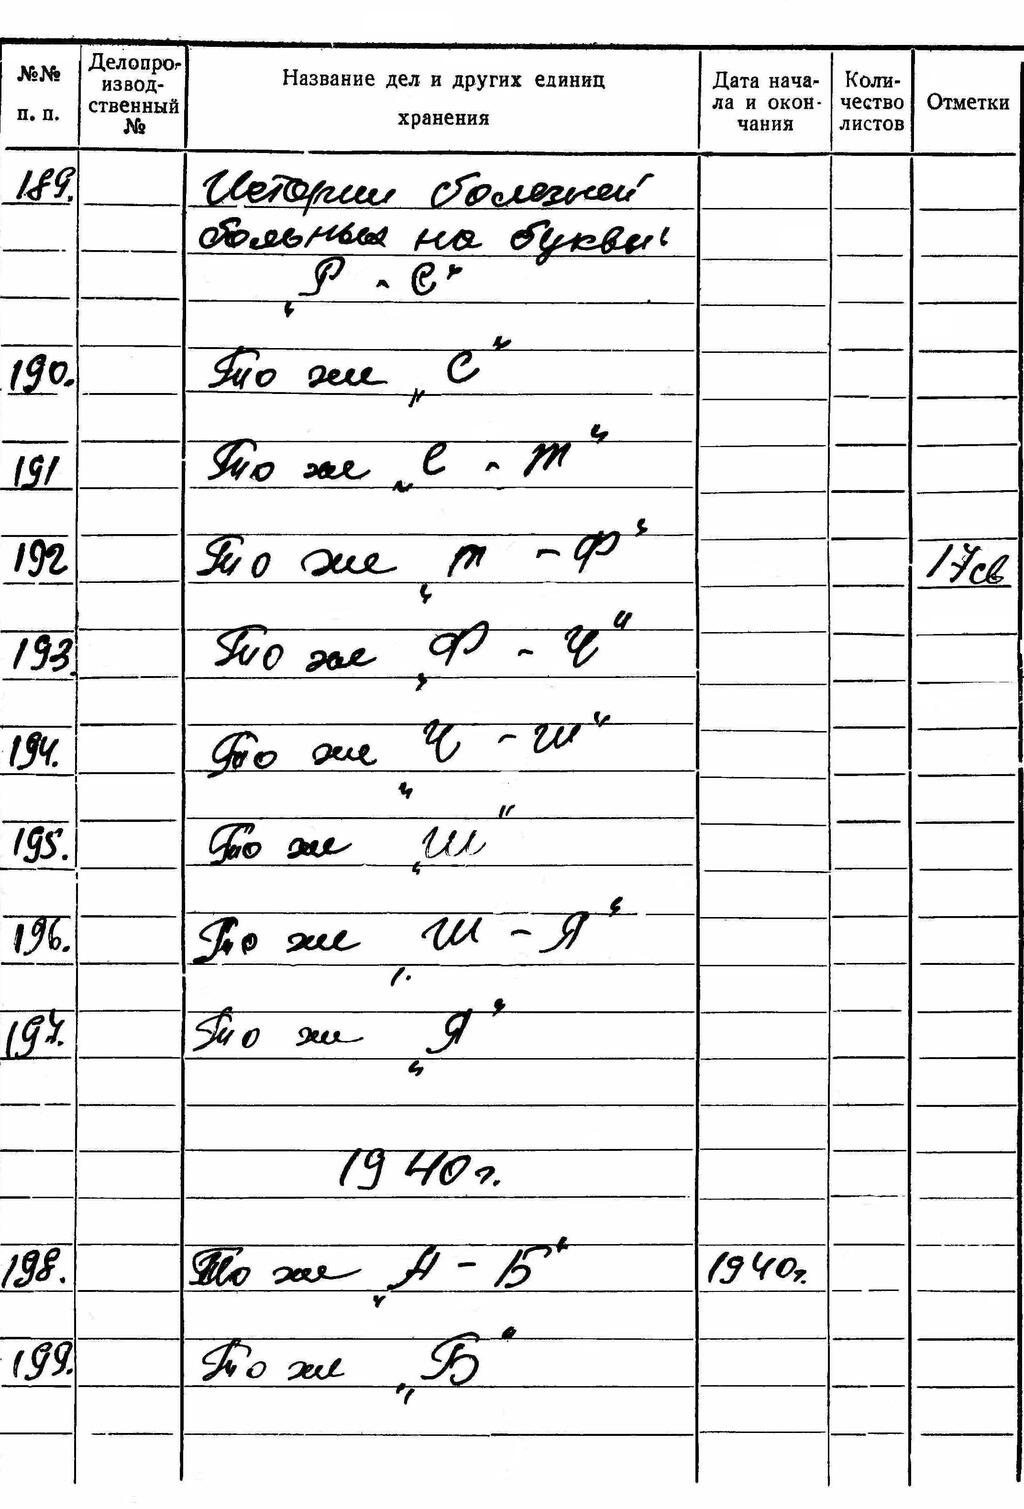 №№ п. п.
Делопроизводственный №
Название дел и других единиц хранения
Дата начала и окончания
Количество листов
Отметки
189. Истории болезней
больных на буквы
„Р - С"
190. То же „С"
191 То же „С - Т"
192 То же „Т - Ф" 17св
193. То же „Ф - Ч"
194. То же „Ч - Ш"
195. То же „Ш"
196. То же „Ш - Я"
197. То же „Я"
1940г.
198. То же „А - Б" 1940г.
199. То же „Б"